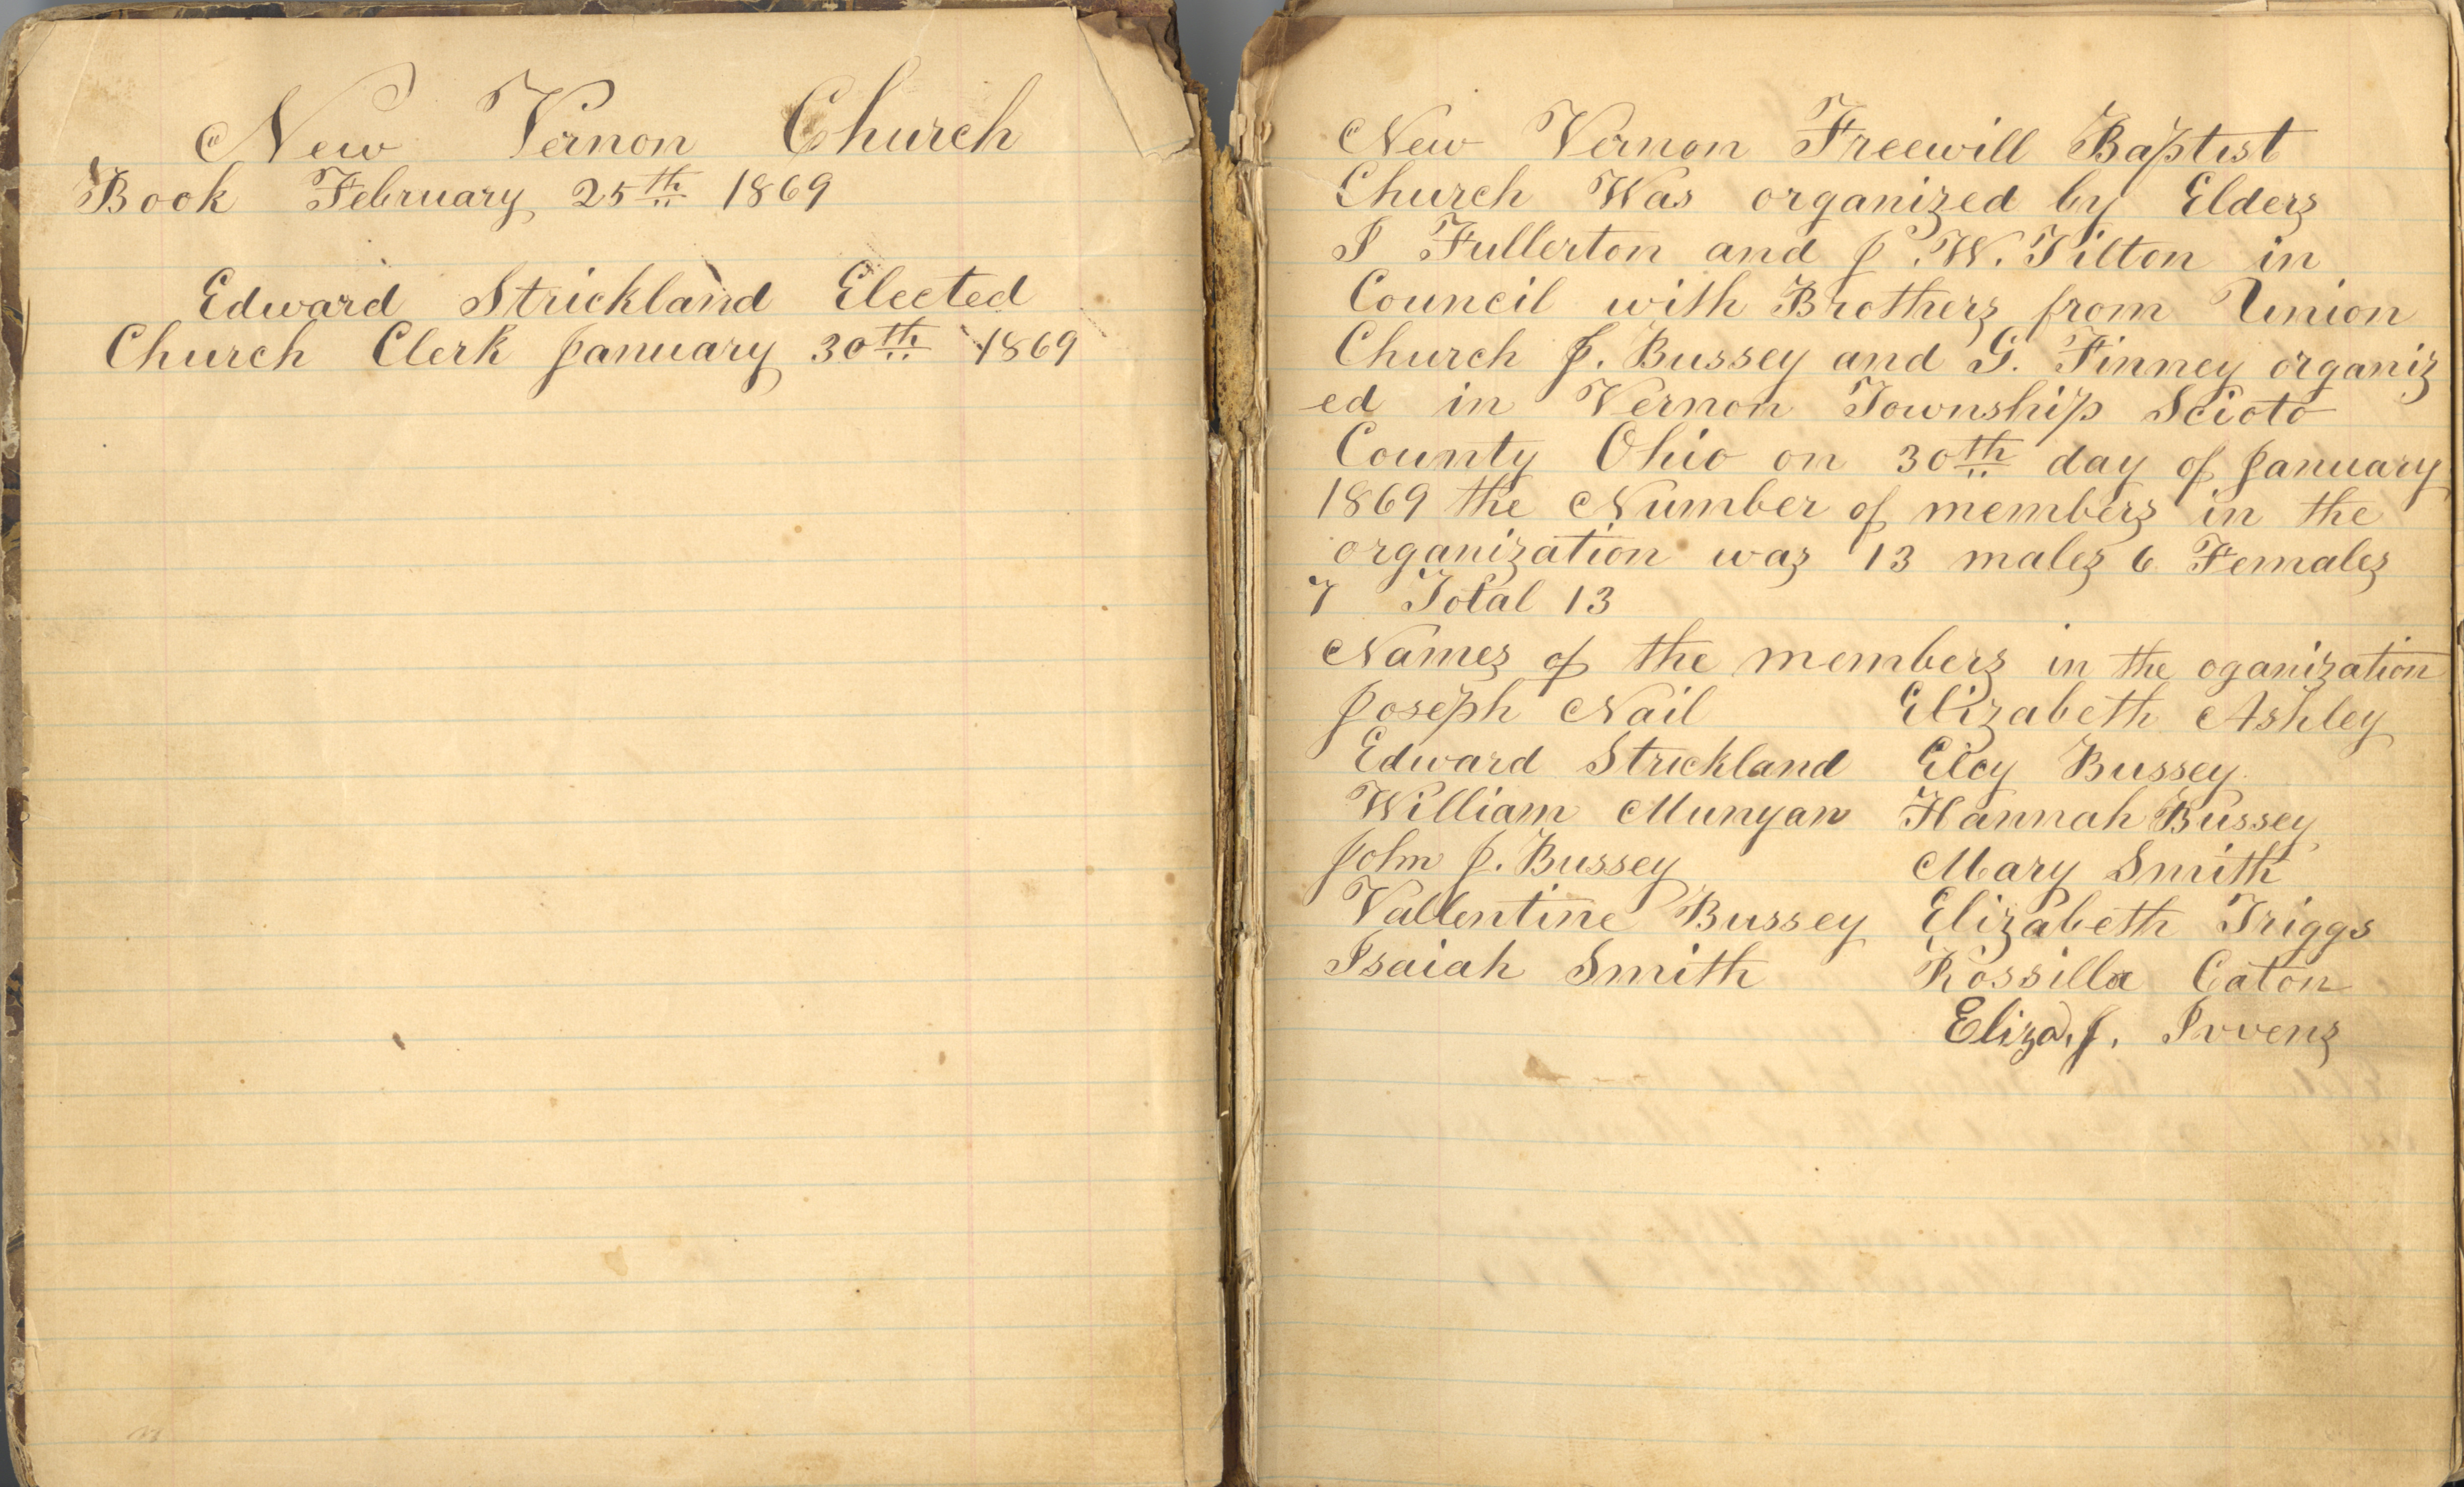 New Vernon Church
Book February 25th 1869
Edward Strickland Elected
Church Clerk January 30th 1869
New Vernon Freewill Baptist
Church Was organized by Elders
I Fullerton and J. W. Tilton in
Council with Brothers from Union
Church J. Bussey and G. Finney organiz
ed in Vernon Township Scioto
County Ohio on 30th day of January
1869 the Number of members in the
organization was 13 males 6 Females
7 Total 13
Names of the members in the oganization
Joseph Nail Elizabeth Ashley
Edward Strickland Elcy Bussey
William Munyan Hannah Bussey
John J. Bussey Mary Smith
Vallentine Bussey Elizabeth Triggs
Isaiah Smith Rossilla Eaton
Eliza. J.